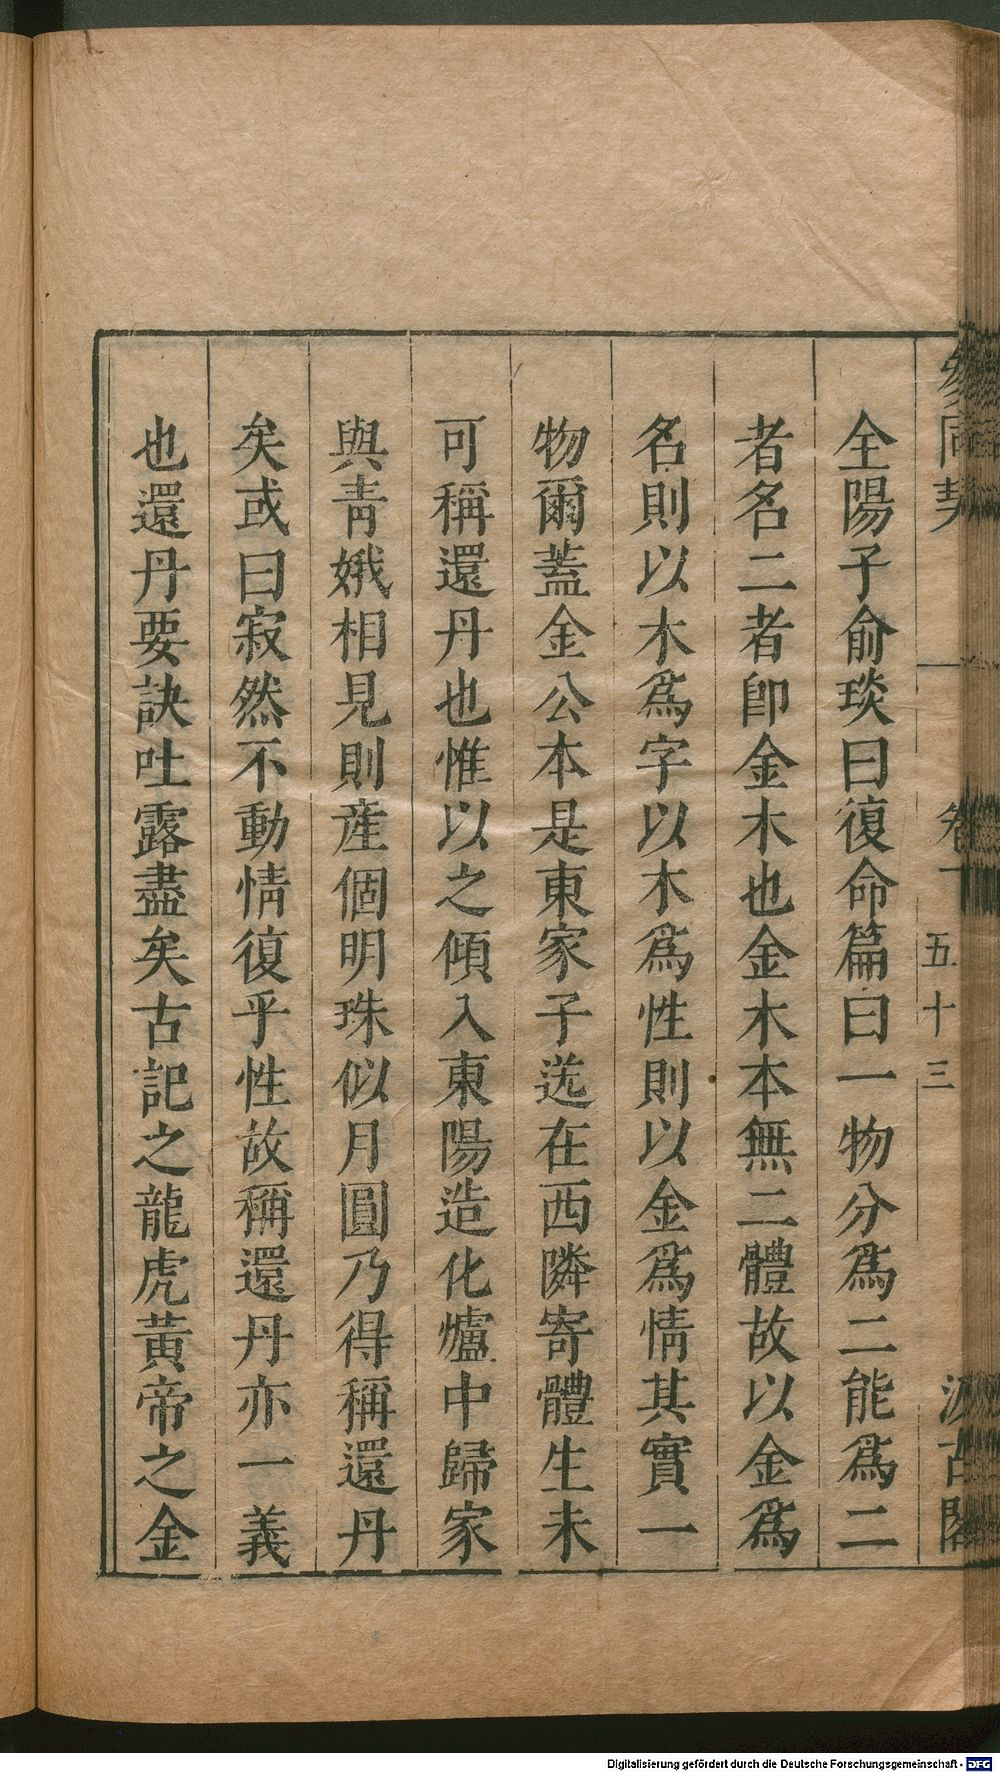 參同契 卷一 五十三 汲古閣
全陽子俞琰曰復命篇曰一物分爲二能爲二
者名二者卽金木也金木本無二體故以金爲
名則以木爲字以木爲性則以金爲情其實一
物爾蓋金公本是東家子送在西隣寄體生未
可稱還丹也惟以之傾入東陽造化爐中歸家
與青娥相見則産個明珠似月圓乃得稱還丹
矣或曰寂然不動情復乎性故稱還丹亦一義
也還丹要訣吐露盡矣古記之龍虎黃帝之金
Digitalisierung gefördert durch die Deutsche Forschungsgemeinschaft - DFG